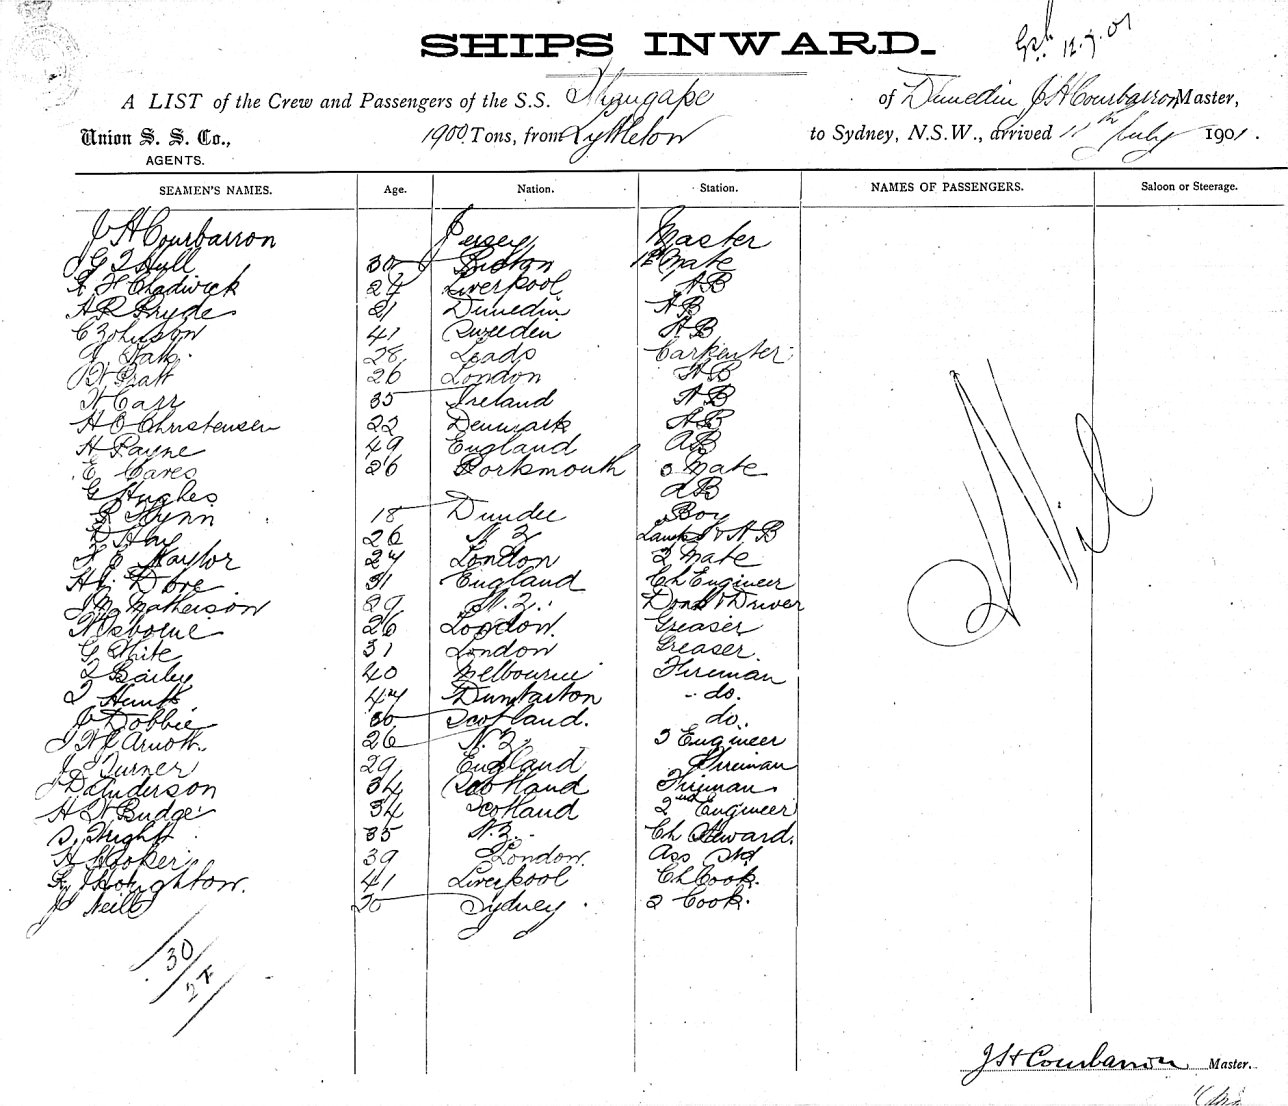 SHIPS INWARD.
12.7.01
A LIST of the Crew and Passengers of the S.S. of Dunedin J H Courbarron Master,
Union S. S. Co., 1900 Tons, from Lyttleton to Sydney, N.S.W., arrived 11th July 1901.
AGENTS.
SEAMEN'S NAMES. Age. Nation. Station. NAMES OF PASSENGERS. Saloon or Steerage.
J H Courbarron Jersey Master
Hull 30 Picton 1st Mate
Chadwick 27 Liverpool AB
A R Pryde 21 Dunedin AB
C Johnson 41 Sweeden AB
28 Leads Carpenter
Pratt 26 London AB
W Carr 35 Ireland AB
H C Christensen 22 Denmark AB
H Payne 49 England AB
E Cares 26 Portsmouth 3 Mate
G Hughes AB
Flynn 18 Dundee Boy
Hay 26 N.Z. Lamps & AB
Naylor 27 London 2 Mate
Dore 31 England Ch Engineer
Matheison 29 N.Z. Donk & Driver
W Osborne 26 London. Greaser
G White 31 London Greaser.
Bailey 40 Melbourne Fireman
47 Dumbarton do.
J Dobbie 30 Scotland. do.
Arnott. 26 N.Z. 3 Engineer
J Turner 29 England Fireman
J D Anderson 34 Scotland Fireman
H W Budge 34 Scotland 2nd Engineer
S. Wright 35 N.Z. Ch Steward.
H Hooker 39 London. Ass Std
Houghton. 41 Liverpool Ch Cook.
J Neill 20 Sydney 2 Cook.
Nil
30
27
J H Courbarron Master.